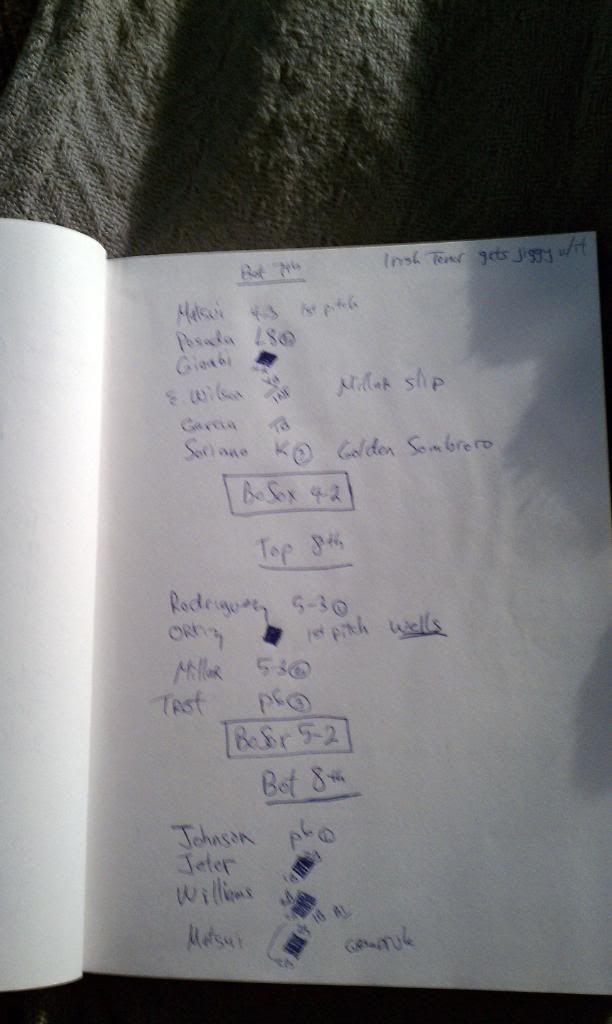 Bot 7th Irish Tenor gets jiggy w/it
Matsui 4-3 1st pitch
Posada L8②
Giambi
E. Wilson Millar slip
Garcia
Soriano K③ Golden Sombrero
BoSox 4-2
Top 8th
Rodriguez 5-3①
Ortiz 1st pitch Wells
Millar 5-3②
Trot p6③
BoSox 5-2
Bot 8th
Johnson p6①
Jeter
Williams
Matsui